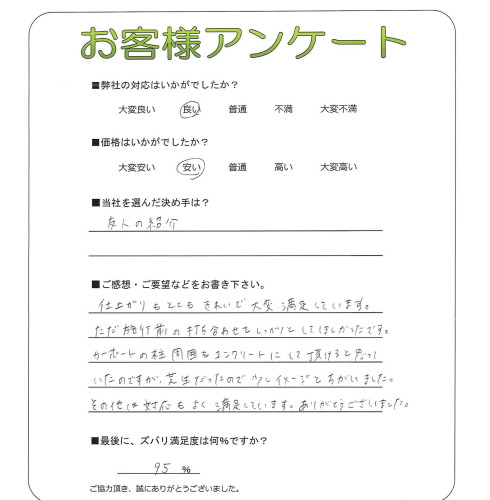 お客様アンケート
■弊社の対応はいかがでしたか？
大変良い 良い 普通 不満 大変不満
■価格はいかがでしたか？
大変安い 安い 普通 高い 大変高い
■当社を選んだ決め手は？
友人の紹介
■ご感想・ご要望などをお書き下さい。
仕上がりもとてもきれいで大変満足しています。
ただ施行前の打ち合わせをしっかりとしてほしかったです。
カーポートの柱周囲もコンクリートにして頂けると思って
いたのですが、芝生だったので少しイメージとちがいました。
その他は対応もよく満足しています。ありがとうございました。
■最後に、ズバリ満足度は何％ですか？
95 ％
ご協力頂き、誠にありがとうございました。